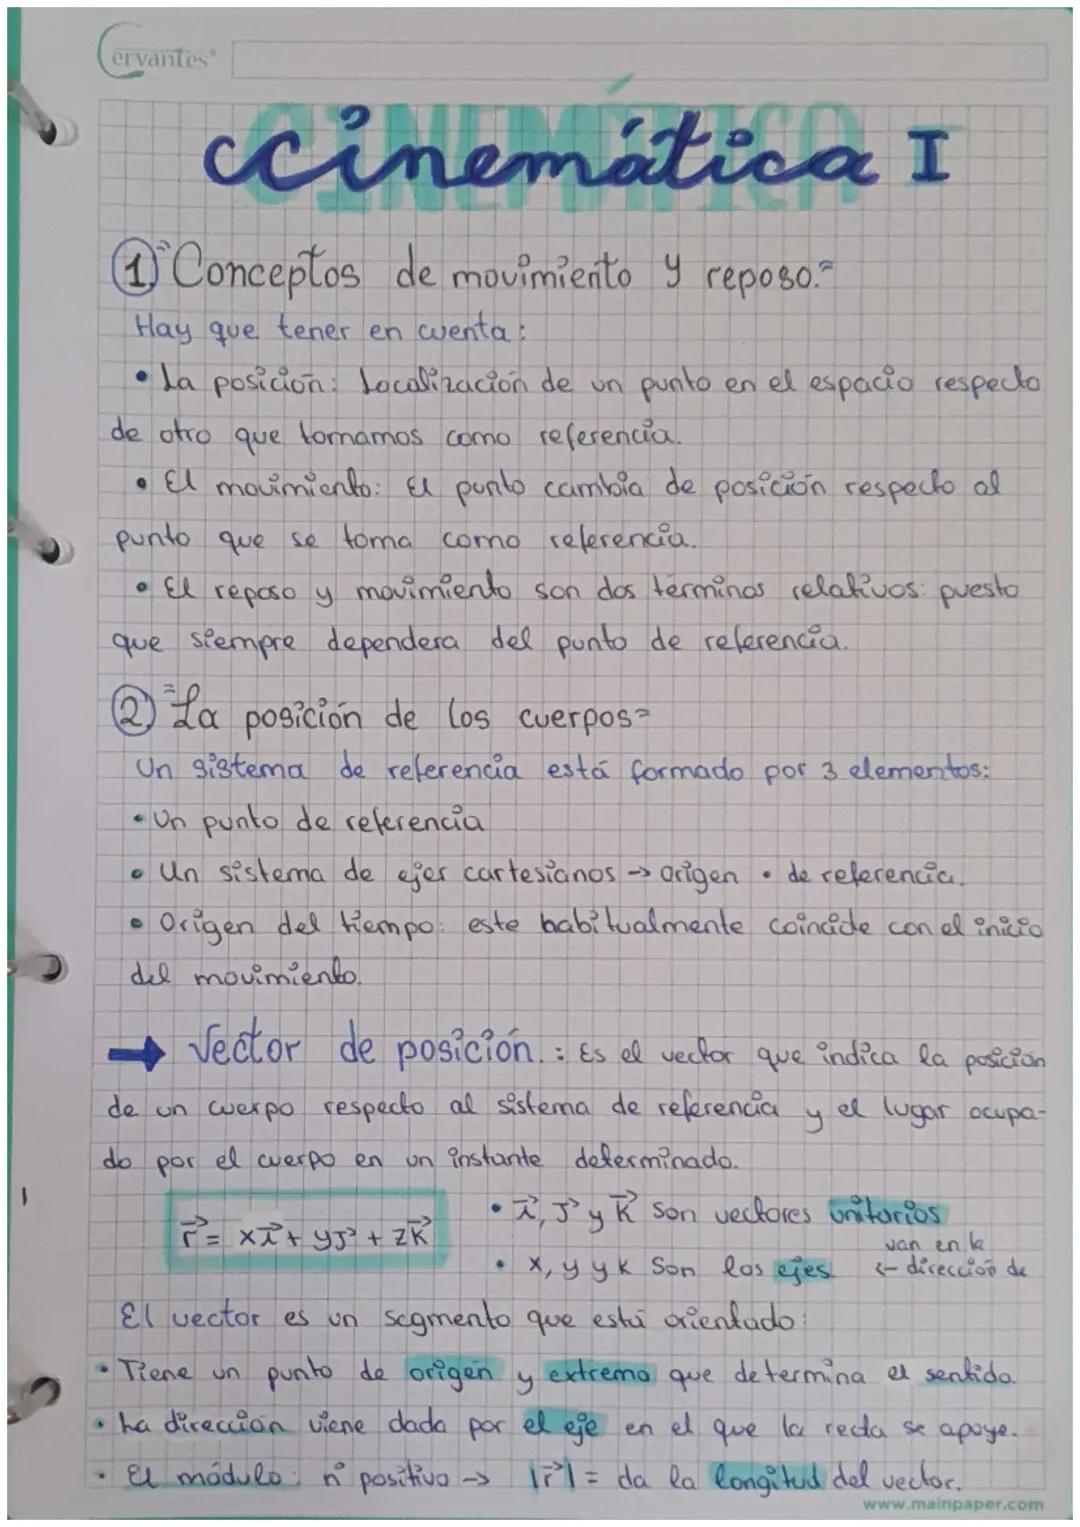 Cervantes
CINEMÁTICA
ccinemática I
1) "Conceptos de movimiento y reposo."
Hay que tener en cuenta:
• La posición: Localización de un punto en el espacio respecto
de otro que tomamos como referencia.
• El movimiento: El punto cambia de posición respecto al
punto que se toma como referencia.
• El reposo y movimiento son dos términos relativos: puesto
que siempre dependera del punto de referencia.
2) "La posición de los cuerpos"
Un sistema de referencia está formado por 3 elementos:
• Un punto de referencia
• Un sistema de ejes cartesianos → origen • de referencia.
• Origen del tiempo: este habitualmente coincide con el inicio
del movimiento.
→ Vector de posición.: Es el vector que indica la posición
de un cuerpo respecto al sistema de referencia y el lugar ocupa-
do por el cuerpo en un instante determinado.
r⃗ = xi⃗ + yj⃗ + zk⃗
• i⃗, j⃗ y k⃗ son vectores unitarios
van en la
• x, y y k son los ejes. ← dirección de
El vector es un segmento que está orientado:
• Tiene un punto de origen y extremo que determina el sentido.
• La dirección viene dada por el eje en el que la recta se apoye.
• El módulo: nº positivo → |r⃗| = da la longitud del vector.
www.mainpaper.com